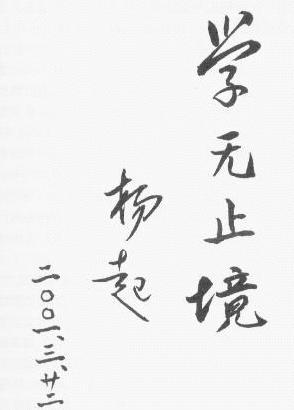 学无止境
杨起
二〇〇一、三、廿二